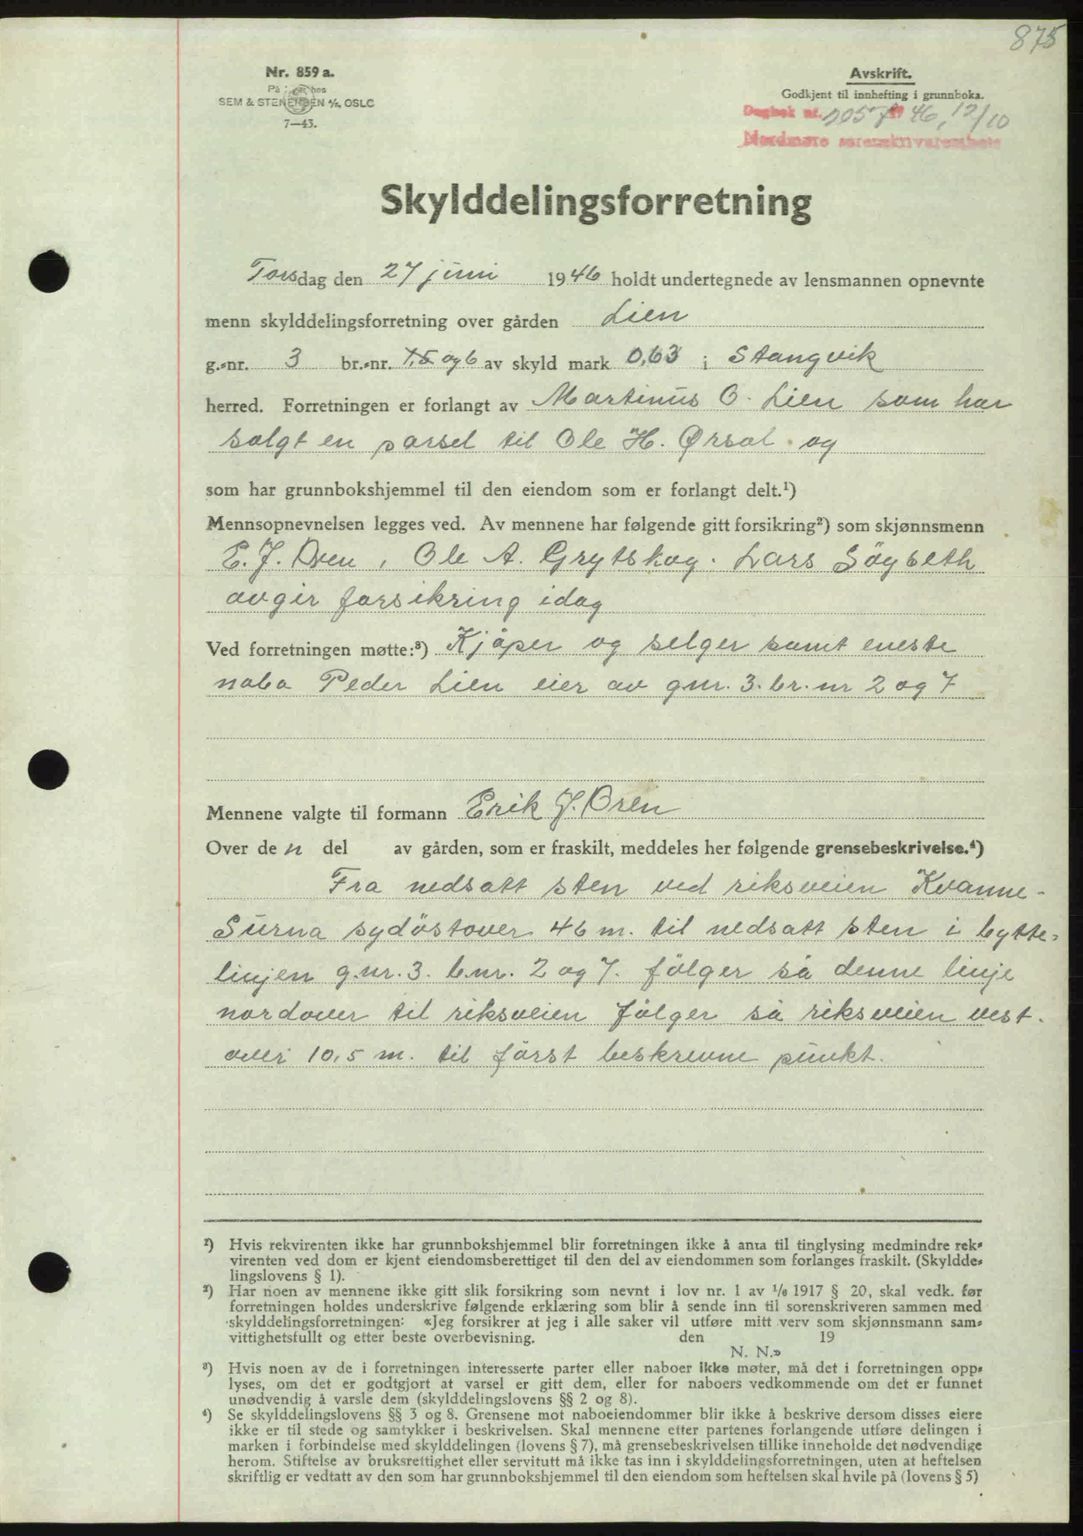 875
Nr. 859 a.
På hos
SEM & STENERSEN A/S, OSLO
7—43.
Avskrift.
Godkjent til innhefting i grunnboka.
Dagbok nr. 2057 1946, 12/10
Nordmøre sorenskriverembete
Skylddelingsforretning
Torsdag den 27 juni 1946 holdt undertegnede av lensmannen opnevnte
menn skylddelingsforretning over gården Lien
g.-nr. 3 br.-nr. 1,5 og 6 av skyld mark 0,63 i Stangvik
herred. Forretningen er forlangt av Martinus O. Lien som har
solgt en parsel til Ole H. Ørsal og
som har grunnbokshjemmel til den eiendom som er forlangt delt.¹)
Mennsopnevnelsen legges ved. Av mennene har følgende gitt forsikring²) som skjønnsmenn
E. J. Øren, Ole A. Grytskog. Lars
avgir forsikring idag
Ved forretningen møtte:³) Kjøper og selger samt eneste
nabo Peder Lien eier av gnr. 3. br. nr 2 og 7
Mennene valgte til formann Erik J. Øren
Over den del av gården, som er fraskilt, meddeles her følgende grensebeskrivelse.⁴)
Fra nedsatt sten ved riksveien Kvanne-
Surna sydøstover 46 m. til nedsatt sten i bytte-
linjen g.nr. 3. b.nr. 2 og 7. følger så denne linje
nordover til riksveien følger så riksveien vest-
over 10,5 m. til først beskrevne punkt.
¹) Hvis rekvirenten ikke har grunnbokshjemmel blir forretningen ikke å anta til tinglysing medmindre rek-
virenten ved dom er kjent eiendomsberettiget til den del av eiendommen som forlanges fraskilt. (Skyldde-
lingslovens § 1).
²) Har noen av mennene ikke gitt slik forsikring som nevnt i lov nr. 1 av 1/6 1917 § 20, skal vedk. før
forretningen holdes underskrive følgende erklæring som blir å sende inn til sorenskriveren sammen med
skylddelingsforretningen: «Jeg forsikrer at jeg i alle saker vil utføre mitt verv som skjønnsmann sam-
vittighetsfullt og etter beste overbevisning. den 19
N. N.»
³) Hvis noen av de i forretningen interesserte parter eller naboer ikke møter, må det i forretningen opp-
lyses, om det er godtgjort at varsel er gitt dem, eller for naboers vedkommende om det er funnet
unødvendig å varsle dem (skylddelingslovens §§ 2 og 8).
⁴) Se skylddelingslovens §§ 3 og 8. Grensene mot naboeiendommer blir ikke å beskrive dersom disses eiere
ikke er til stede og samtykker i beskrivelsen. Skal mennene etter partenes forlangende utføre delingen i
marken i forbindelse med skylddelingen (lovens § 7), må grensebeskrivelsen tillike inneholde det nødvendige
herom. Stiftelse av bruksrettighet eller servitutt må ikke tas inn i skylddelingsforretningen, uten at heftelsen
skriftlig er vedtatt av den som har grunnbokshjemmel til den eiendom som heftelsen skal hvile på (lovens § 5)